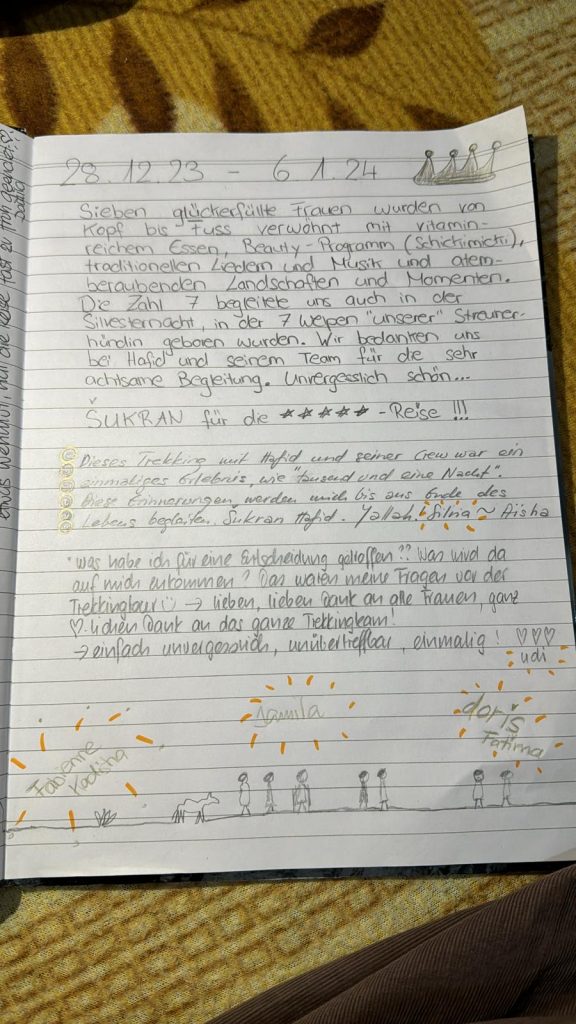 28.12.23 – 6.1.24
Sieben glückerfüllte Frauen wurden von
Kopf bis Fuss verwöhnt mit vitamin-
reichem Essen, Beauty-Programm (Schickimicki),
traditionellen Liedern und Musik und atem-
beraubenden Landschaften und Momenten.
Die Zahl 7 begleitete uns auch in der
Silvesternacht, in der 7 Welpen "unserer" Streuner-
hündin geboren wurden. Wir bedanken uns
bei Hafid und seinem Team für die sehr
achtsame Begleitung. Unvergesslich schön...
ŠUKRAN für die ★★★★★ -Reise !!!
Dieses Trekking mit Hafid und seiner Crew war ein
einmaliges Erlebnis, wie "tausend und eine Nacht".
Diese Erinnerungen werden mich bis ans Ende des
Lebens begleiten. Sukran Hafid. Yallah! Silvia ~ Aisha
"Was habe ich für eine Entscheidung getroffen?? Was wird da
auf mich zukommen? Das waren meine Fragen vor der
Trekkingtour☺ → lieben, lieben Dank an alle Frauen, ganz
♡-lichen Dank an das ganze Trekkingteam!
→ einfach unvergesslich, unübertreffbar, einmalig! ♡♡♡
udi
Jamila
doris
Fatima
Fabienne
Kadisha